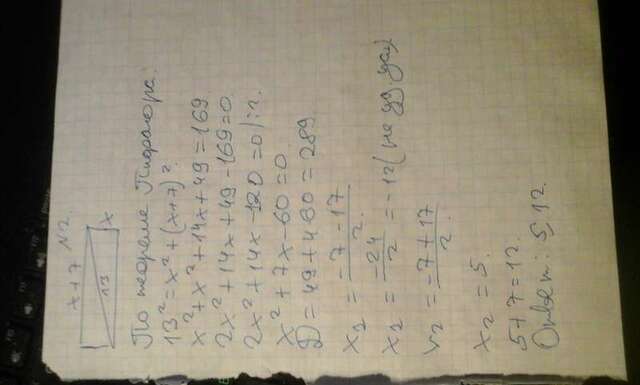 x+7 №2.
x
13
По теореме Пифагора:
13² = x² + (x+7)²
x² + x² + 14x + 49 = 169
2x² + 14x + 49 - 169 = 0
2x² + 14x - 120 = 0 | : 2.
x² + 7x - 60 = 0
D = 49 + 480 = 289.
x₂ = -7 - 17 / 2
x₂ = -24 / 2 = -12 (не уд. усл)
x₂ = -7 + 17 / 2.
x₂ = 5.
5 + 7 = 12.
Ответ: 5, 12.